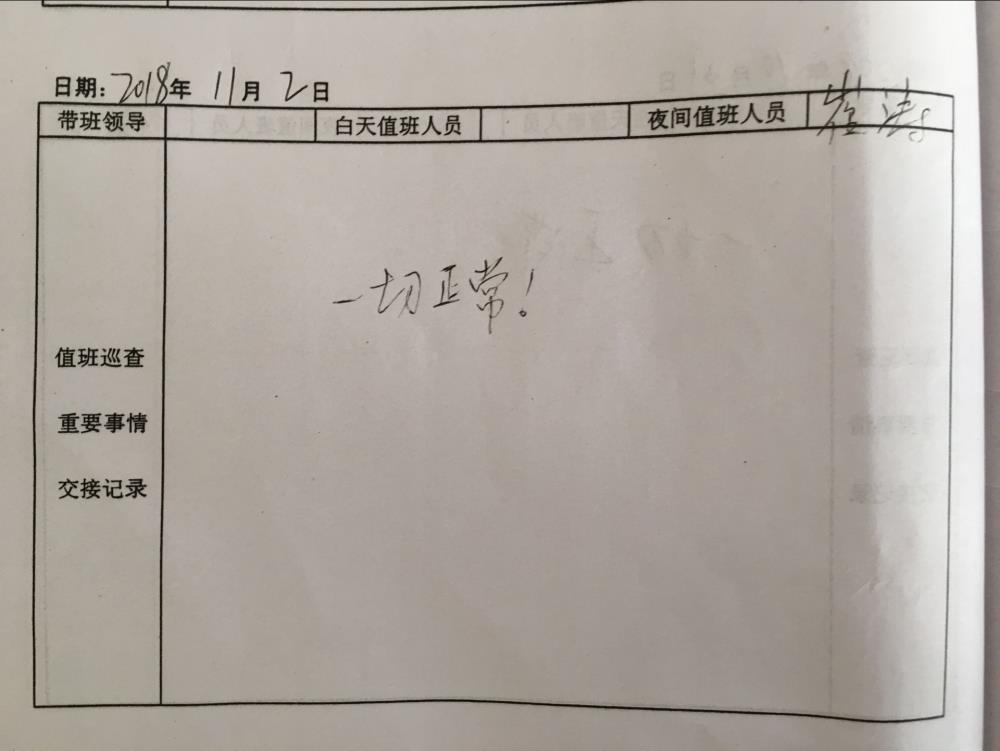 日期：2018年 11月 2日
带班领导 白天值班人员 夜间值班人员 崔涛
一切正常！
值班巡查
重要事情
交接记录